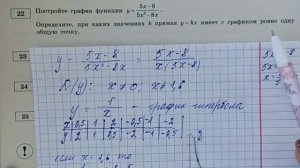 22
Постройте график функции y = (5x-8)/(5x²-8x)
Определите, при каких значениях k прямая y=kx имеет с графиком ровно одну
общую точку.
23
y = (5x-8)/(5x²-8x) = (5x-8)/(x(5x-8))
5x-8
5x=
24
D(y): x≠0, x≠1,6
y = 1/x - график гипербола
25
x | 0,5 | 1 | 2 | -0,5 | -1 | -2
y | 2 | 1 | 0,5 | -2 | -1 | -0,5
если x=1,6 то